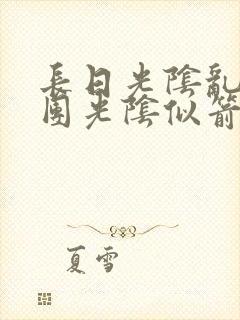 長日光陰亂
團光陰似箭
夏雪